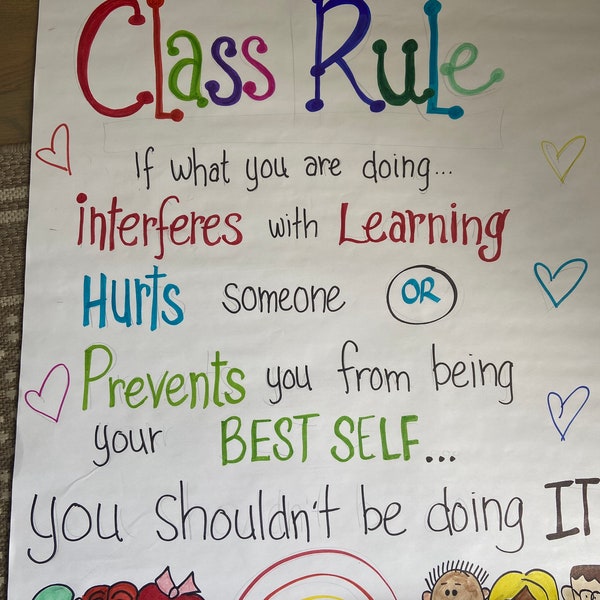 Class Rule
If what you are doing...
interferes with Learning
Hurts someone OR
Prevents you from being
your BEST SELF...
you shouldn't be doing IT